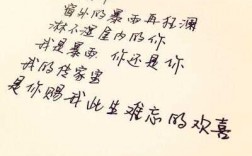 窗外的暴雨再狂澜
淋不湿屋内的你
我是暴雨 你还是你
我的传家宝
是你赐我此生难忘的欢喜